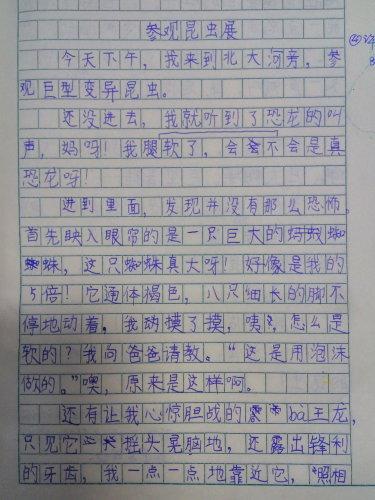 参观昆虫展
今天下午，我来到北大河旁，参
观巨型变异昆虫。
还没进去，我就听到了恐龙的叫
声，妈呀！我腿软了，会不会是真
恐龙呀！
进到里面，发现并没有那么恐怖。
首先映入眼帘的是一只巨大的蜘
蛛，这只蜘蛛真大呀！好像是我的
5倍！它通体褐色，八只细长的脚不
停地动着。我摸了摸，咦，怎么是
软的？我向爸爸请教。“还是用泡沫
做的。”噢，原来是这样啊。
还有让我心惊胆战的ba王龙，
只见它摇头晃脑地，还露出锋利
的牙齿，我一点一点地靠近它，“照相